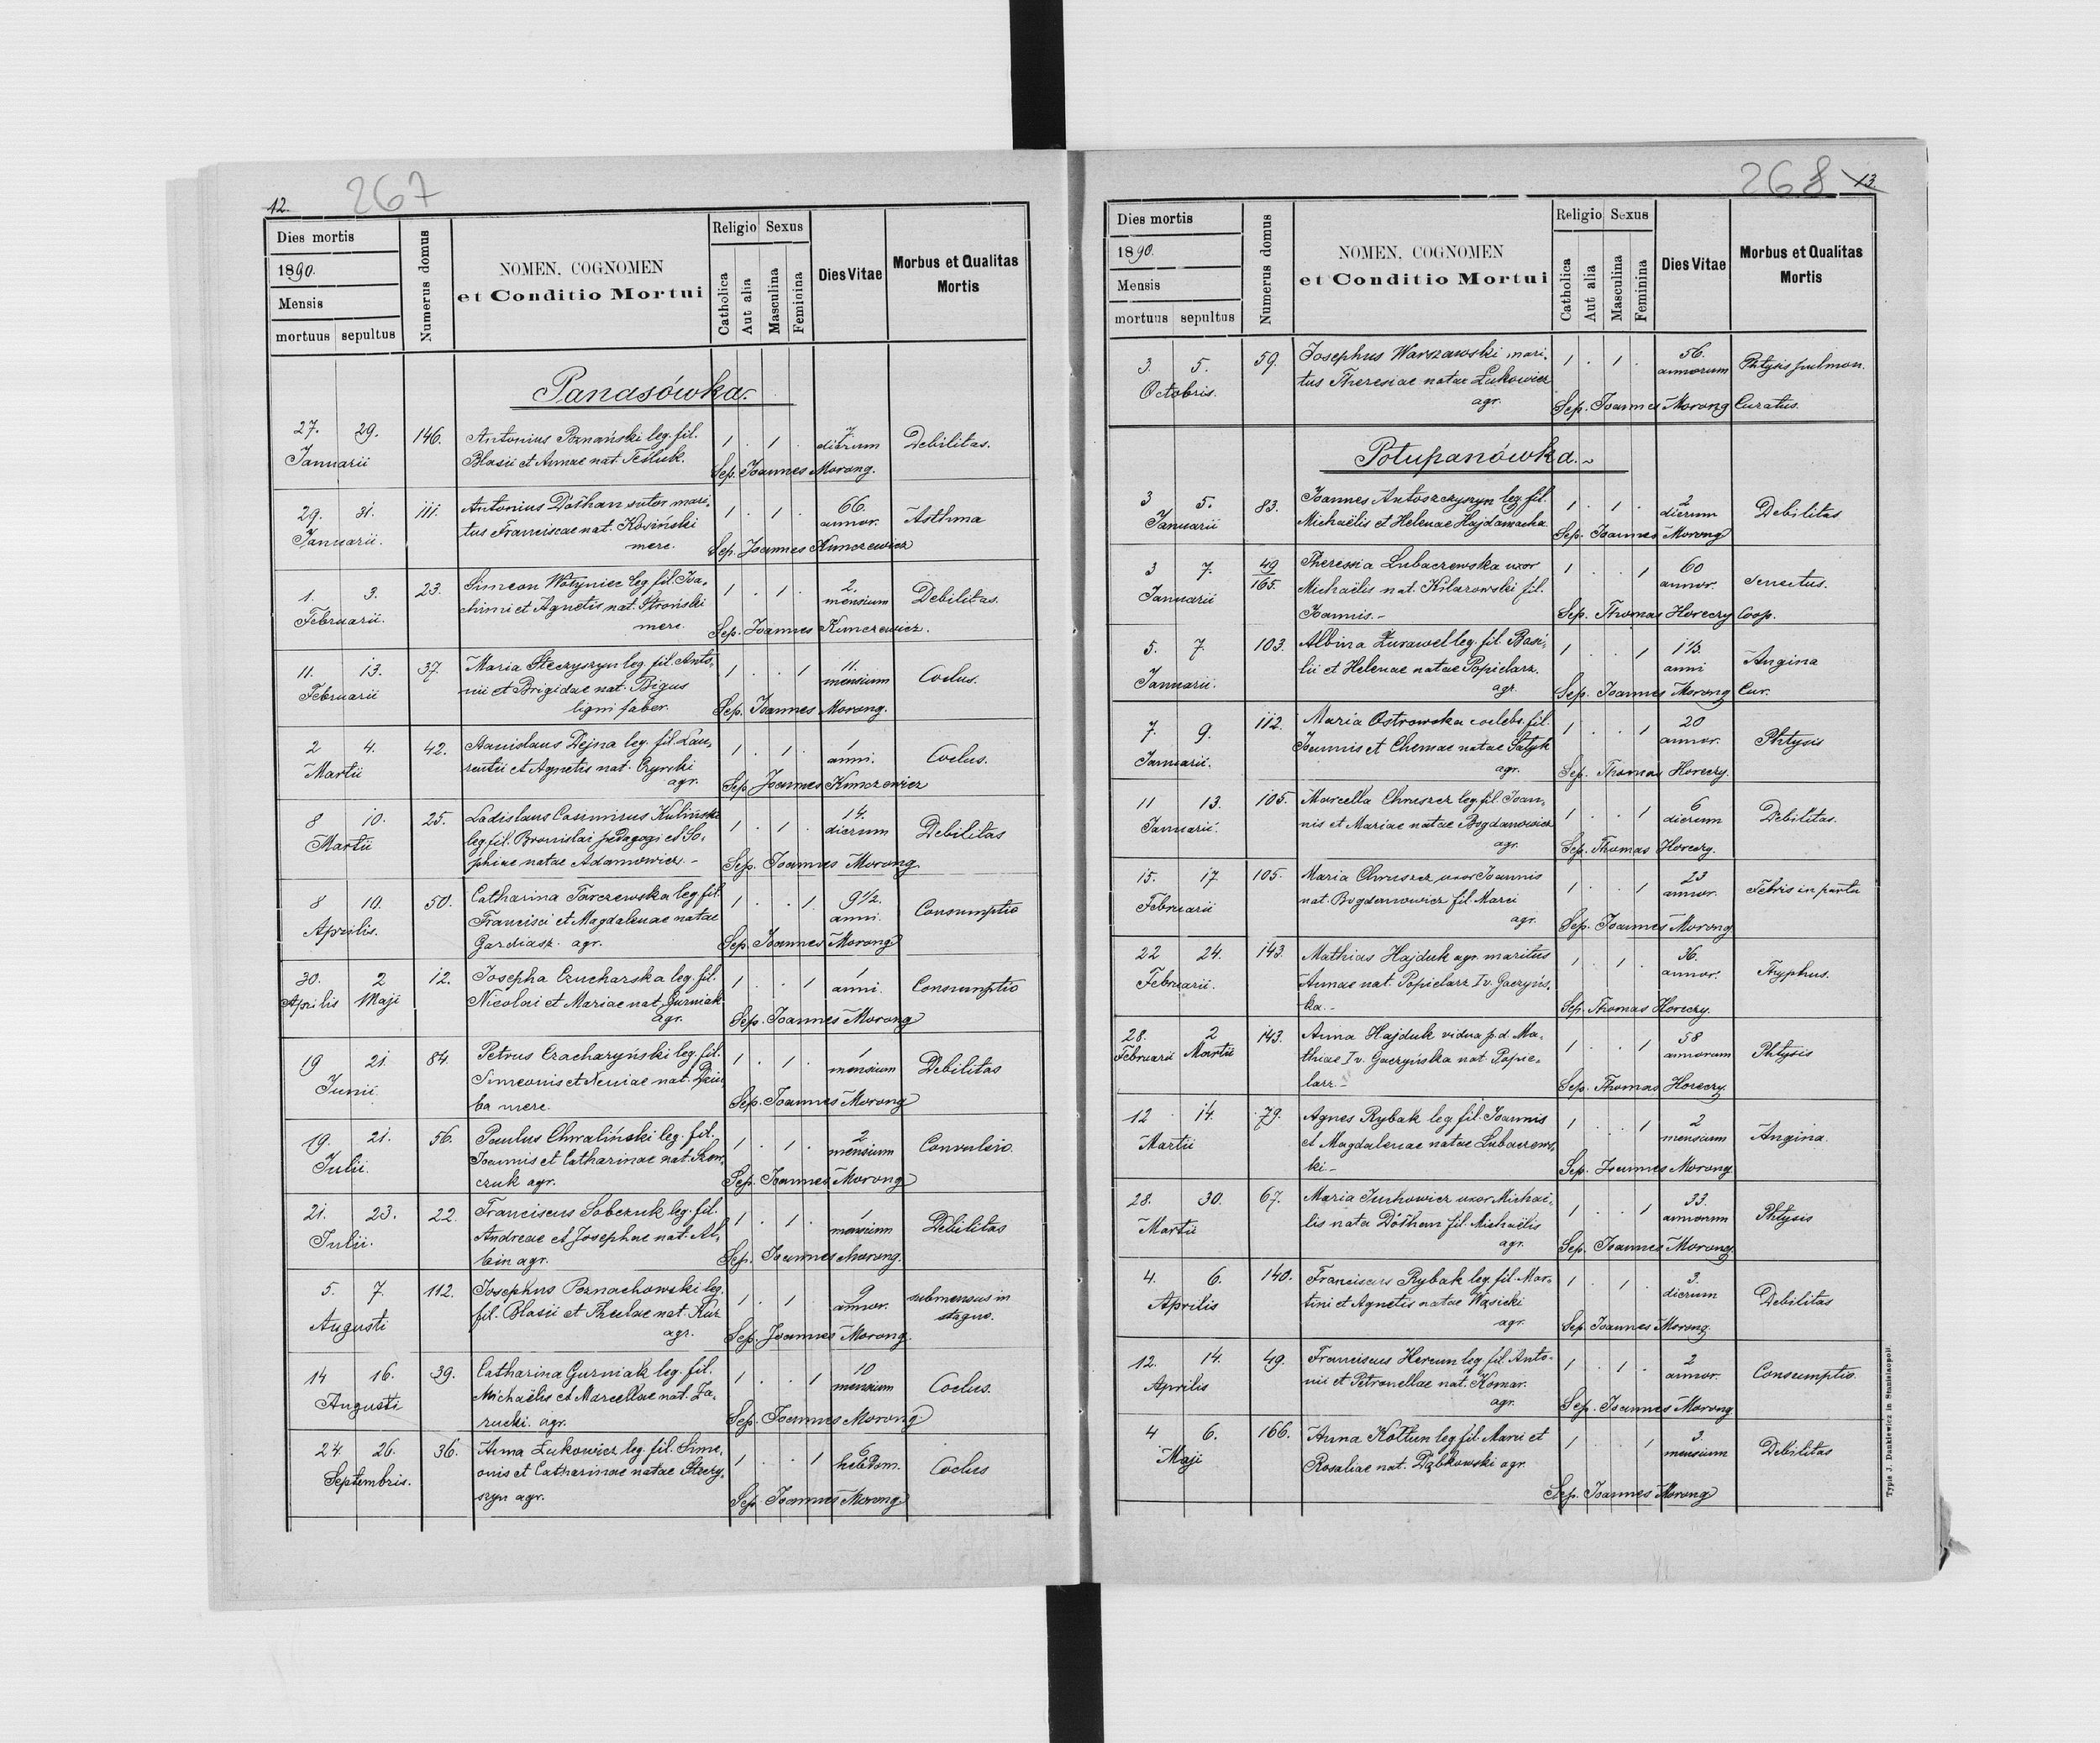 12.
267
Dies mortis
1890.
Mensis
mortuus sepultus
Numerus domus
NOMEN, COGNOMEN
et Conditio Mortui
Religio
Catholica
Aut alia
Sexus
Masculina
Feminina
Dies Vitae
Morbus et Qualitas
Mortis
Panasówka.
27. 29. 146. Antonius Poznański leg. fil. 1 . 1 . 7 Debilitas.
Januarii Blasii et Annae nat. Teśluk. dierum
Sep. Joannes Morong.
29. 31. 111. Antonius Dothan sutor mari- 1 . 1 . 66. Asthma
Januarii. tus Franciscae nat. Kosiński annor.
merc. Sep. Joannes Kunczewicz
1. 3. 23. Simeon Wołyniec leg. fil. Joa- 1 . 1 . 2. Debilitas.
Februarii. chimi et Agnetis nat. Stroński mensium
merc. Sep. Joannes Kunczewicz.
11. 13. 37. Maria Steczyszyn leg. fil. Anto- 1 . . 1 11. Coclus.
Februarii nii et Brigidae nat. Bigus mensium
ligni faber. Sep. Joannes Morong.
2 4. 42. Stanislaus Dejna leg. fil. Lau- 1 . 1 . 1 Coclus.
Martii rentii et Agnetis nat. Czyrski anni.
agr. Sep. Joannes Kunczewicz
8 10. 25. Ladislaus Casimirus Kuliński 1 . 1 . 14. Debilitas
Martii leg. fil. Bronislai pedagogi et So- dierum
phiae natae Adamowicz. - Sep. Joannes Morong
8 10. 50. Catharina Tarczewska leg. fil. 1 . . 1 9 1/2. Consumptio
Aprilis. Francisci et Magdalenae natae anni.
Gardiasz. agr. Sep. Joannes Morong
30. 2 12. Josepha Czucharska leg. fil. 1 . . 1 1 Consumptio
Aprilis Maji Nicolai et Mariae nat. Gurniak anni.
agr. Sep. Joannes Morong
19 21. 84. Petrus Czacharyński leg. fil. 1 . 1 . 1 Debilitas
Junii. Simeonis et Xeniae nat. Dziu- mensium
ba merc. Sep. Joannes Morong
19. 21. 56. Paulus Chwaliński leg. fil. 1 . 1 . 2 Convulsio.
Julii. Joannis et Catharinae nat. Szew- mensium
czuk agr. Sep. Joannes Morong
21. 23. 22 Franciscus Sobczuk leg. fil. 1 . 1 . 1 Debilitas
Julii. Andreae et Josephae nat. Al- mensium
bin agr. Sep. Joannes Morong.
5. 7. 112. Josephus Poznachowski leg. 1 . 1 . 9 submensus in
Augusti fil. Blasii et Theclae nat. Kuz annor. stagno.
agr. Sep. Joannes Morong.
14 16. 39. Catharina Gurniak leg. fil. 1 . . 1 10 Coclus.
Augusti Michaëlis et Marcellae nat. Za- mensium
rucki. agr. Sep. Joannes Morong
24 26. 36. Anna Łukowicz leg. fil. Sime- 1 . . 1 6 Coclus
Septembris. onis et Catharinae natae Steczy- hebdom.
szyn agr. Sep. Joannes Morong
268 13.
Dies mortis
1890.
Mensis
mortuus sepultus
Numerus domus
NOMEN, COGNOMEN
et Conditio Mortui
Religio
Catholica
Aut alia
Sexus
Masculina
Feminina
Dies Vitae
Morbus et Qualitas
Mortis
3. 5. 59. Josephus Warszawski mari- 1 . 1 . 56. Phtysis pulmon.
Octobris. tus Theresiae natae Łukowicz annorum
agr. Sep. Joannes Morong Curatus.
Potupanówka.
3 5. 83. Joannes Antoszczyszyn leg. fil. 1 . 1 . 2 Debilitas
Januarii Michaëlis et Helenae Hajdamacha dierum
Sep. Joannes Morong
3 7. 49/165. Theresia Lubaczewska uxor 1 . . 1 60 Senectus.
Januarii Michaëlis nat. Kilarowski fil. annor.
Joannis. - Sep. Thomas Horeczy Coop.
5. 7. 103. Albina Żurawel leg. fil. Basi- 1 . . 1 1 1/2. Angina
Januarii. lii et Helenae natae Popielarz. anni
agr. Sep. Joannes Morong Cur.
7. 9. 112. Maria Ostrowska coelebs. fil. 1 . . 1 20 Phtysis
Januarii. Joannis et Chemae natae Satyk annor.
agr. Sep. Thomas Horeczy.
11 13. 105. Marcella Chruszcz leg. fil. Joan- 1 . . 1 6 Debilitas.
Januarii. nis et Mariae natae Bogdanowicz dierum
agr. Sep. Thomas Horeczy.
15. 17 105. Maria Chruszcz uxor Joannis 1 . . 1 23 Febris in partu
Februarii nat. Bogdanowicz fil. Marci annor.
agr. Sep. Joannes Morong
22 24. 143. Mathias Hajduk agr. maritus 1 . 1 . 36. Thyphus.
Februarii. Annae nat. Popielarz Iv. Gaczyńs- annor.
ka. - Sep. Thomas Horeczy.
28. 2 143. Anna Hajduk vidua p.d. Ma- 1 . . 1 58 Phtysis
Februarii Martii thiae Iv. Gaczyńska nat. Popie- annorum
larz. - Sep. Thomas Horeczy.
12 14. 79. Agnes Rybak leg. fil. Joannis 1 . . 1 2 Angina.
Martii et Magdalenae natae Lubaczews- mensium
ki - Sep. Joannes Morong.
28. 30. 67. Maria Juchowicz uxor Michaë- 1 . . 1 33. Phtysis
Martii lis nata Dothan fil. Michaëlis annorum
agr. Sep. Joannes Morong.
4. 6. 140. Franciscus Rybak leg. fil. Mar- 1 . 1 . 3. Debilitas
Aprilis tini et Agnetis natae Wąsicki dierum
agr. Sep. Joannes Morong.
12. 14. 49. Franciscus Hereun leg. fil. Anto- 1 . 1 . 2 Consumptio.
Aprilis nii et Petronellae nat. Komar. annor.
agr. Sep. Joannes Morong
4 6. 166. Anna Kołtun leg. fil. Marci et 1 . . 1 3. Debilitas
Maji Rosaliae nat. Dąbkowski agr. mensium
Sep. Joannes Morong
Typis J. Dankiewicz in Stanislaopoli.